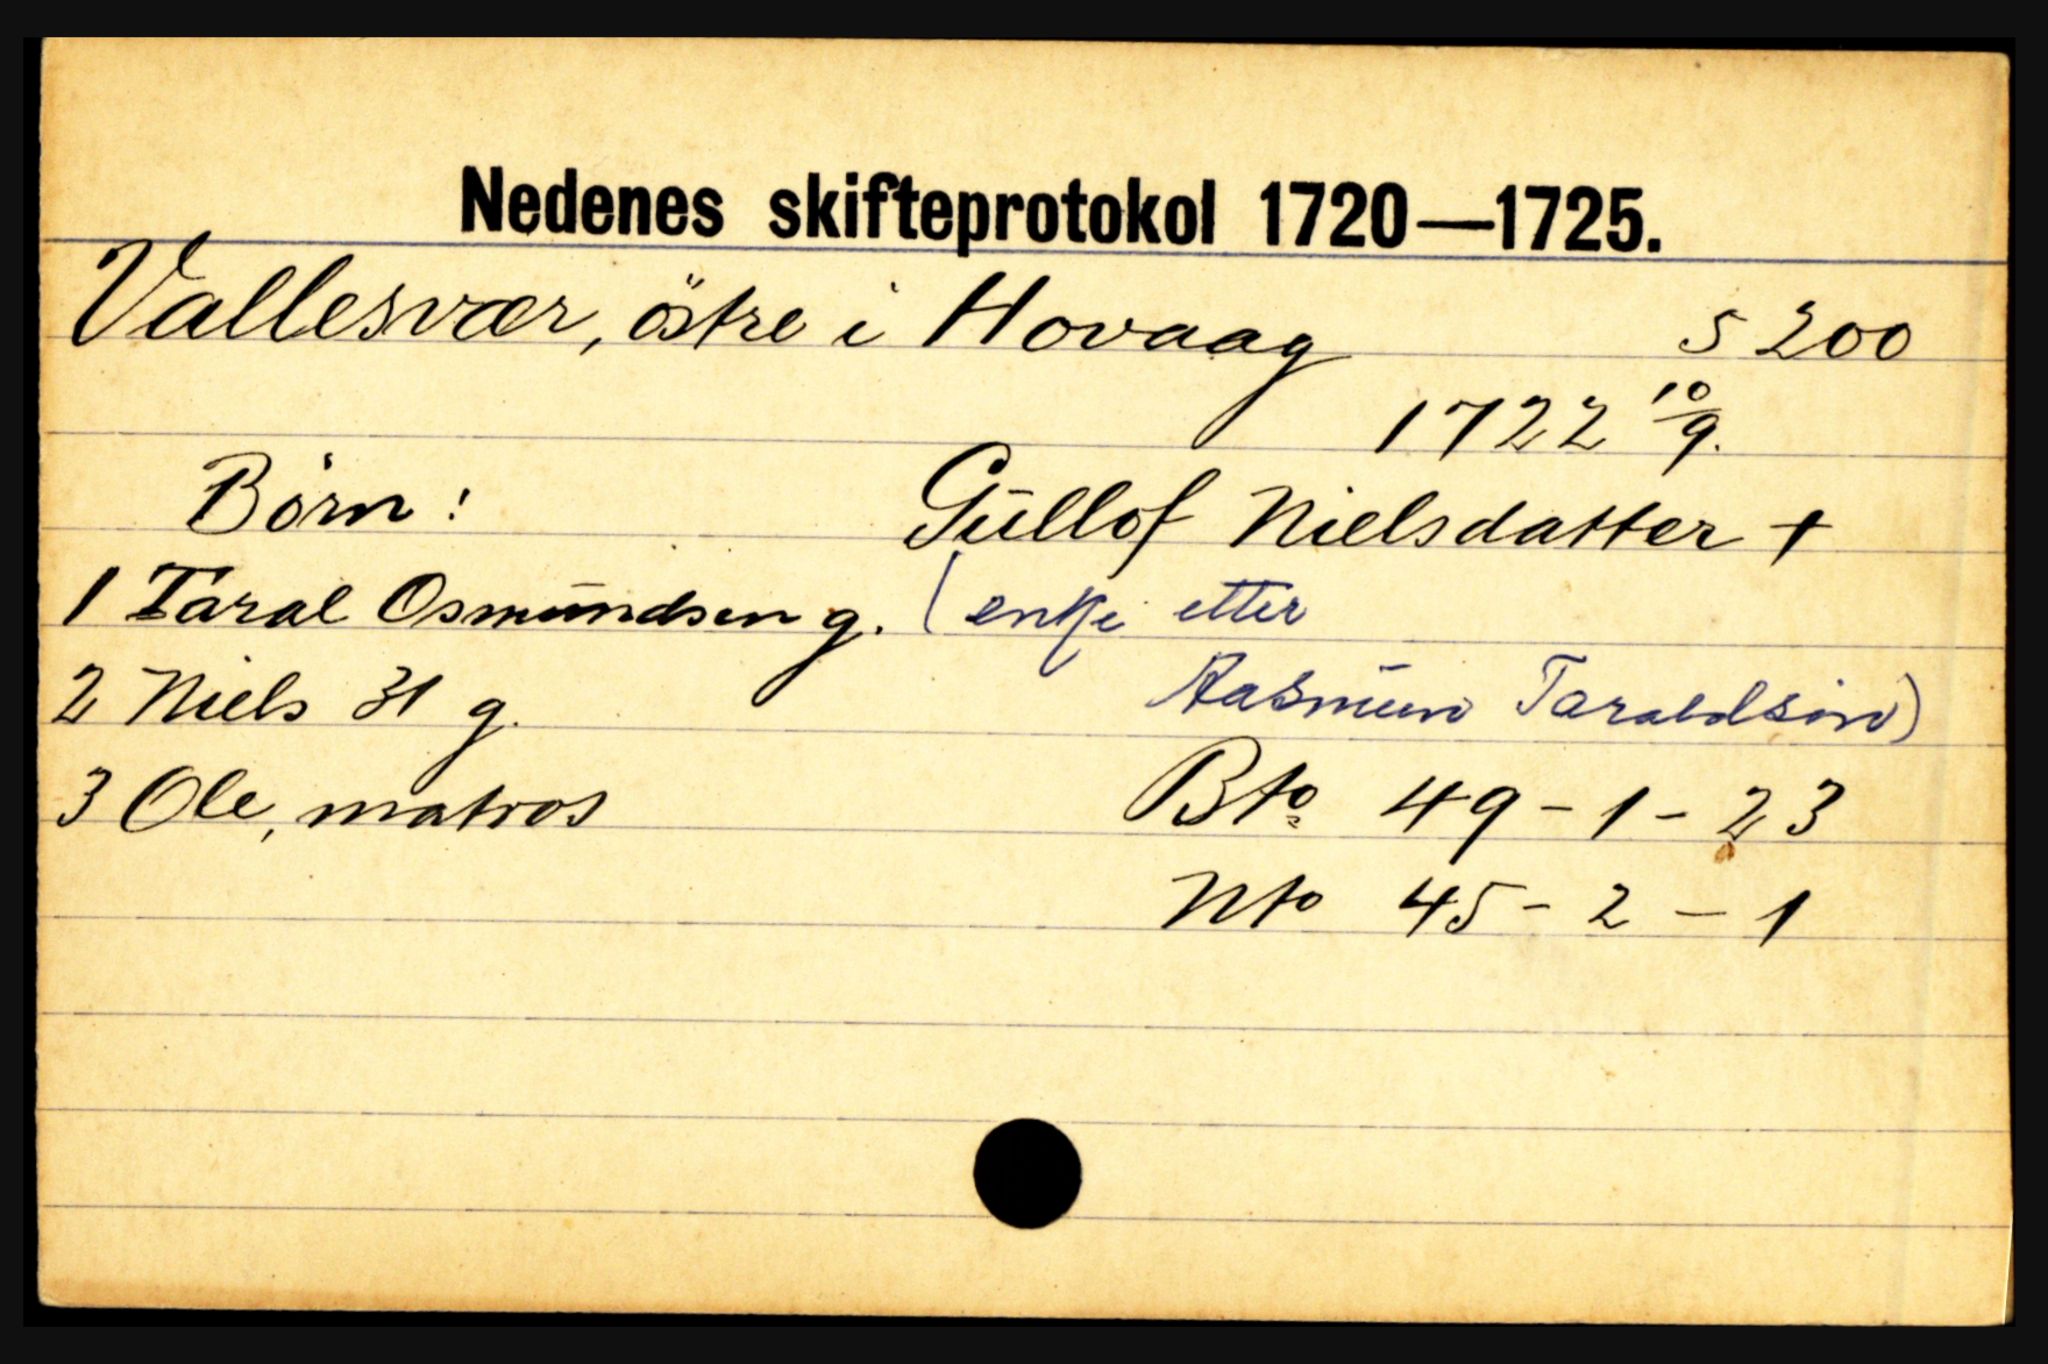 Nedenes skifteprotokol 1720—1725.
Vallesvær, östre i Hovaag s 200
1722 10/9.
Börn: Gūllof Nielsdatter +
1 Taral Osmūndsen g. (enke etter
2 Niels 31 g. Aasmūn Taraldsøn)
3 Ole, matros Bto 49-1-23
Nto 45-2-1